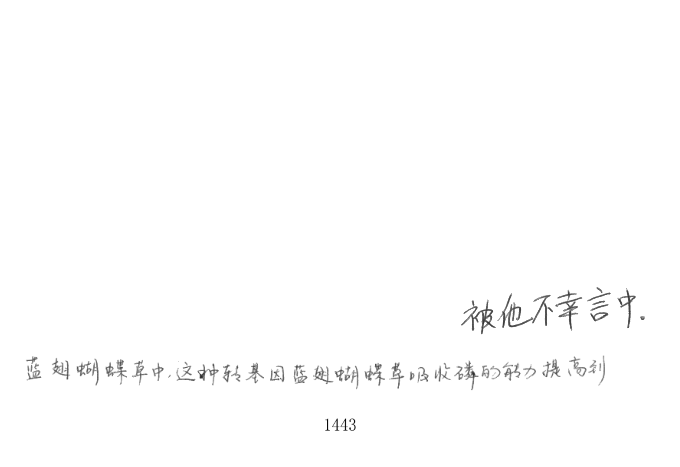 被他不幸言中.
蓝翅蝴蝶草中,这种转基因蓝翅蝴蝶草吸收磷的能力提高到
1443